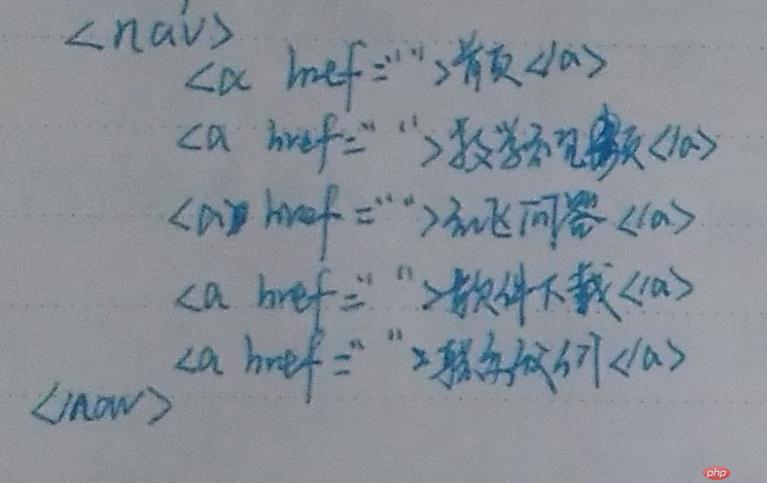 <nav>
<a href="">首页</a>
<a href="">教学视频</a>
<a href="">问答</a>
<a href="">软件下载</a>
<a href="">联系我们</a>
</nav>
php